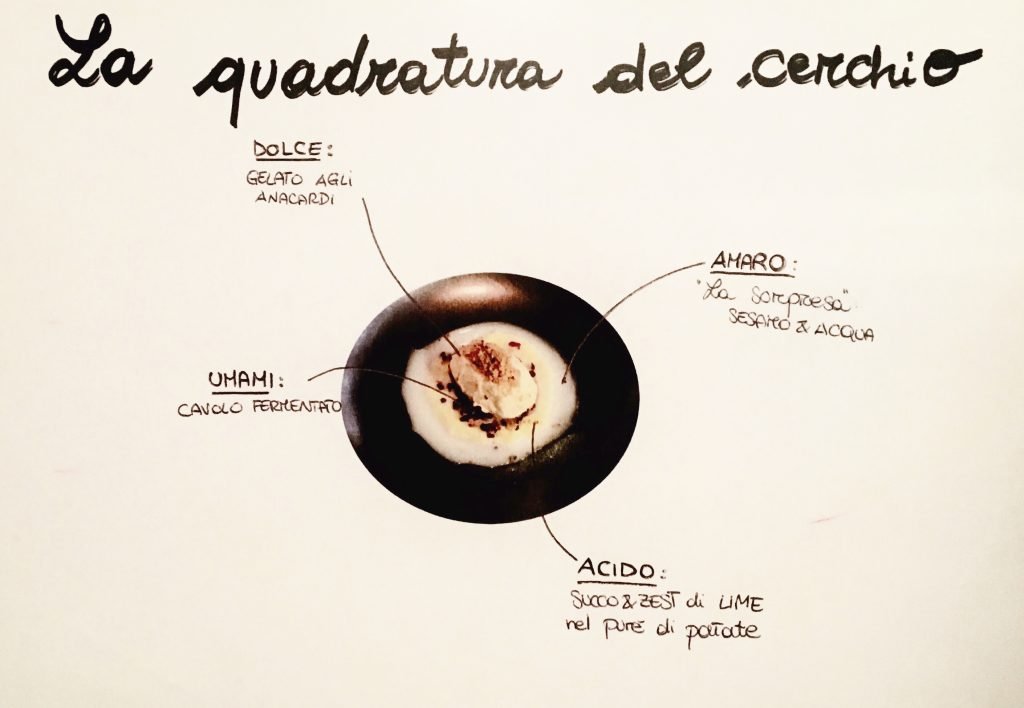 La quadratura del cerchio
DOLCE:
GELATO AGLI
ANACARDI
AMARO:
"La sorpresa"
SESAMO & ACQUA
UMAMI:
CAVOLO FERMENTATO
ACIDO:
SUCCO & ZEST di LIME
nel purè di patate